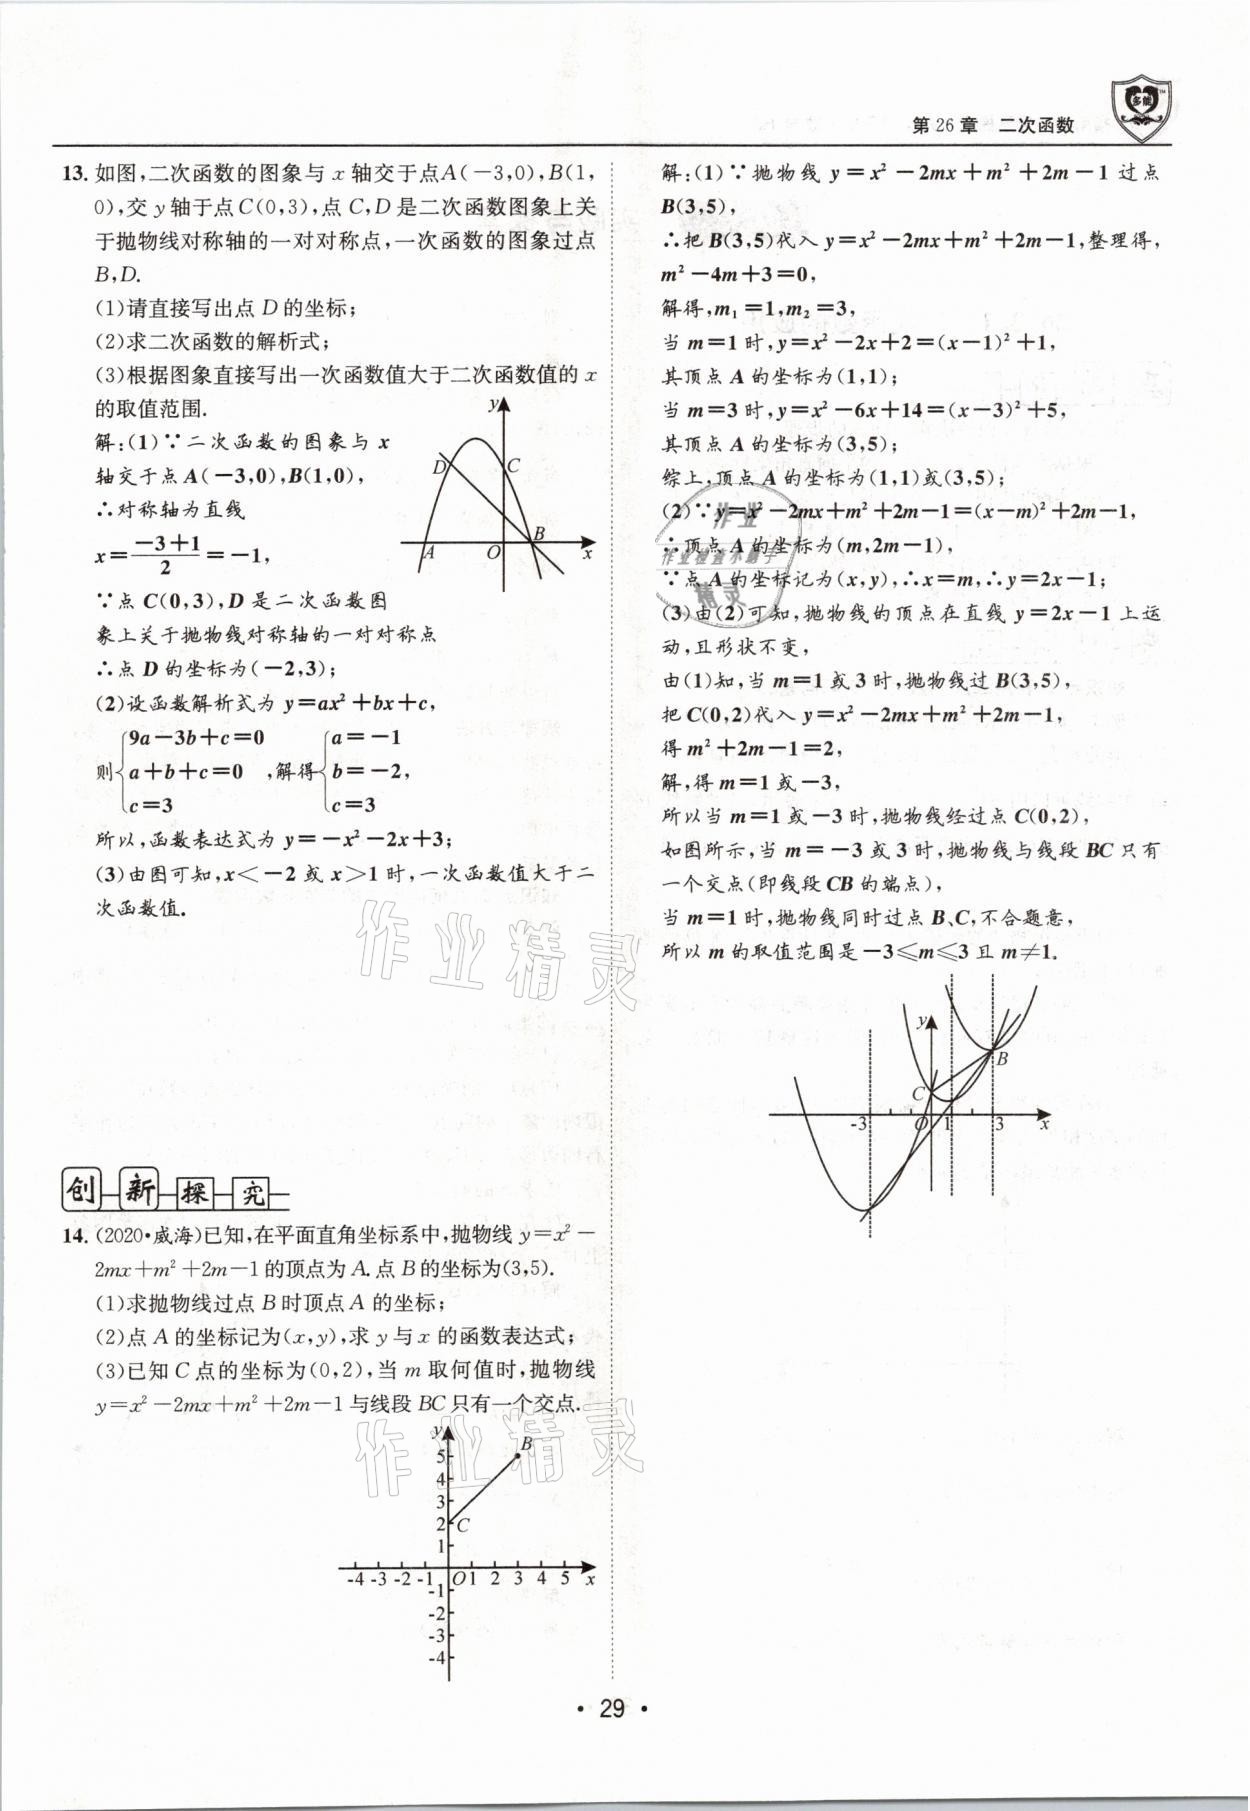 第26章 二次函数
多能
TM
13. 如图,二次函数的图象与 x 轴交于点A(-3,0),B(1,
0),交 y 轴于点 C(0,3),点 C,D 是二次函数图象上关
于抛物线对称轴的一对对称点,一次函数的图象过点
B,D.
(1)请直接写出点 D 的坐标;
(2)求二次函数的解析式;
(3)根据图象直接写出一次函数值大于二次函数值的 x
的取值范围.
解:(1)∵二次函数的图象与 x
轴交于点 A(-3,0),B(1,0),
∴对称轴为直线
x=\frac{-3+1}{2}=-1,
∵点 C(0,3),D 是二次函数图
象上关于抛物线对称轴的一对对称点
∴点 D 的坐标为(-2,3);
(2)设函数解析式为 y=ax²+bx+c,
则{9a-3b+c=0 a+b+c=0 c=3,解得{a=-1 b=-2, c=3
所以,函数表达式为 y=-x²-2x+3;
(3)由图可知,x<-2 或 x>1 时,一次函数值大于二
次函数值.
y
D
C
A
O
B
x
创新探究
14. (2020·威海)已知,在平面直角坐标系中,抛物线 y=x²-
2mx+m²+2m-1的顶点为A.点B的坐标为(3,5).
(1)求抛物线过点 B 时顶点 A 的坐标;
(2)点 A 的坐标记为(x,y),求 y 与 x 的函数表达式;
(3)已知 C 点的坐标为(0,2),当 m 取何值时,抛物线
y=x²-2mx+m²+2m-1与线段 BC 只有一个交点.
y
B
5
4
3
2
C
1
-4 -3 -2 -1 O 1 2 3 4 5 x
-1
-2
-3
-4
解:(1)∵抛物线 y=x²-2mx+m²+2m-1 过点
B(3,5),
∴把 B(3,5)代入 y=x²-2mx+m²+2m-1,整理得,
m²-4m+3=0,
解得,m₁=1,m₂=3,
当 m=1 时,y=x²-2x+2=(x-1)²+1,
其顶点 A 的坐标为(1,1);
当 m=3 时,y=x²-6x+14=(x-3)²+5,
其顶点 A 的坐标为(3,5);
综上,顶点 A 的坐标为(1,1)或(3,5);
(2)∵y=x²-2mx+m²+2m-1=(x-m)²+2m-1,
∴顶点 A 的坐标为(m,2m-1),
∵点 A 的坐标记为(x,y),∴x=m,∴y=2x-1;
(3)由(2)可知,抛物线的顶点在直线 y=2x-1 上运
动,且形状不变,
由(1)知,当 m=1 或 3 时,抛物线过 B(3,5),
把 C(0,2)代入 y=x²-2mx+m²+2m-1,
得 m²+2m-1=2,
解,得 m=1 或 -3,
所以当 m=1 或 -3 时,抛物线经过点 C(0,2),
如图所示,当 m=-3 或 3 时,抛物线与线段 BC 只有
一个交点(即线段 CB 的端点),
当 m=1 时,抛物线同时过点 B、C,不合题意,
所以 m 的取值范围是 -3≤m≤3 且 m≠1.
y
B
C
-3 O 1 3 x
作业
作业检查小助手
精灵
作业精灵
作业精灵
· 29 ·